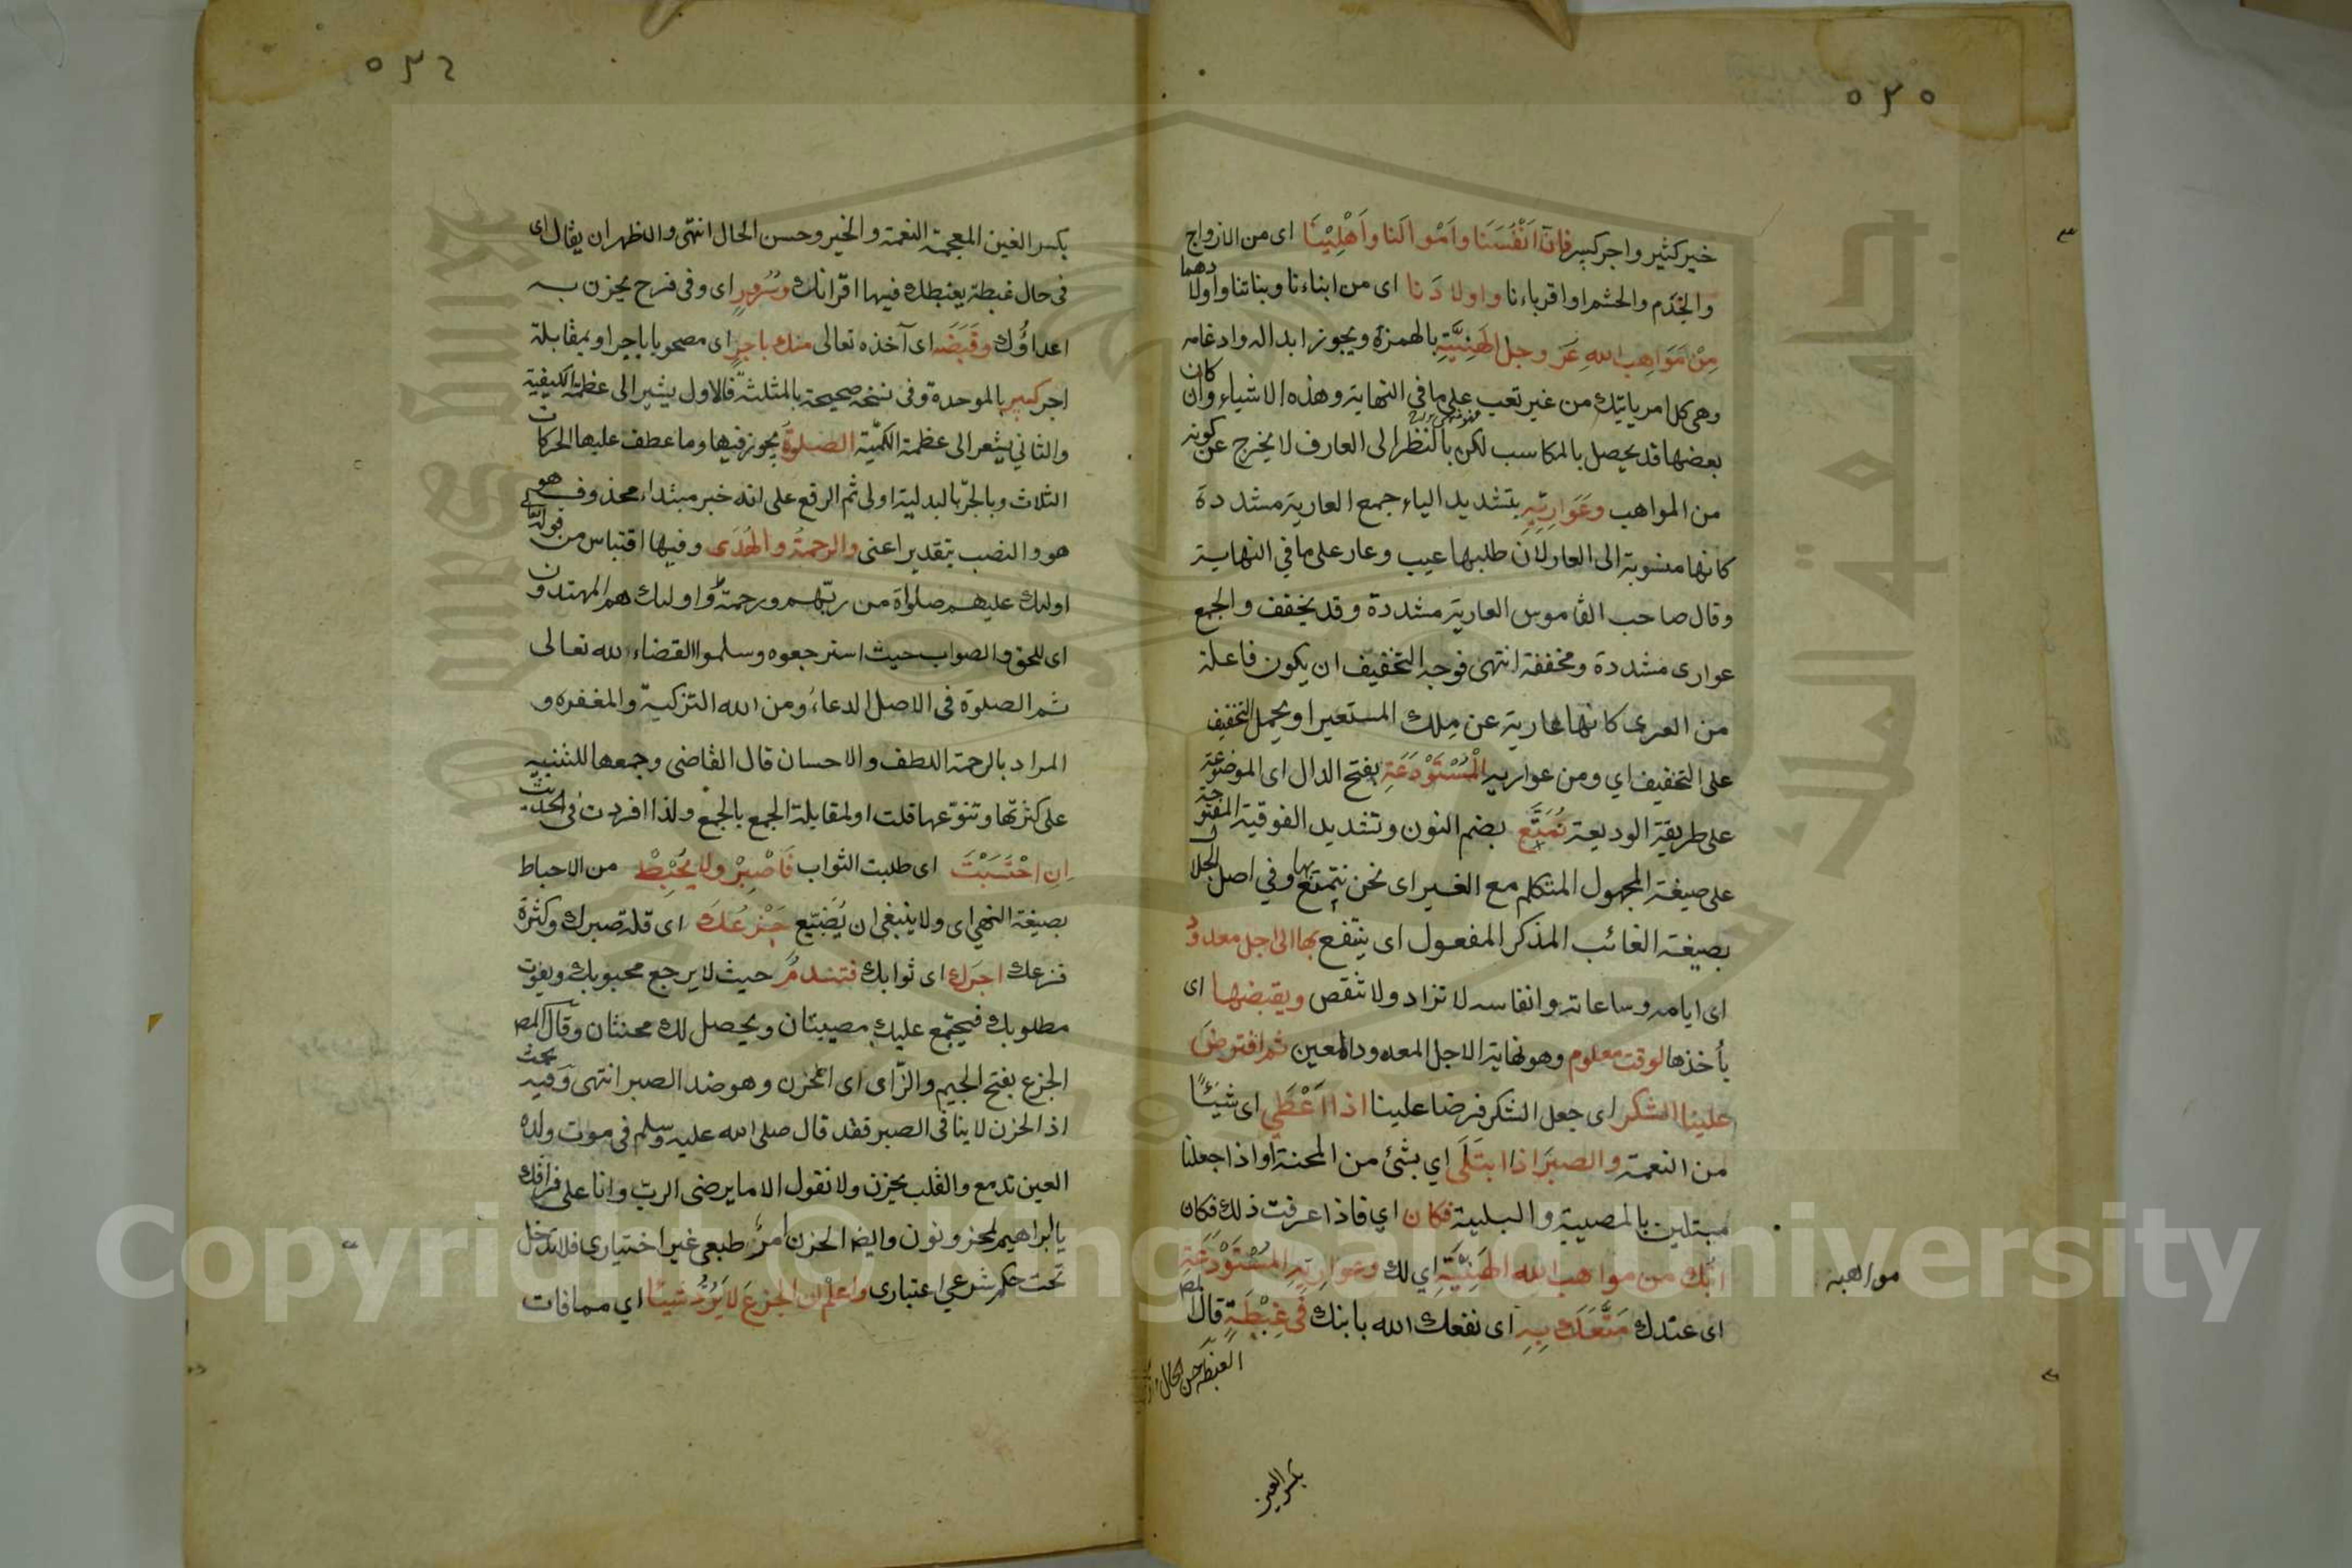 ٥٣٥
خير كثير واجر كبير فان انفسنا واموالنا واهلينا اى من الازواج
والخدم والحشم او اقرباءنا واولادنا اى من ابناءنا وبناتنا واولادهما
من مواهب الله عز وجل الهنيئة بالهمزة ويجوز ابداله وادغامه
وهى كل امر ياتيك من غير تعب على ما فى النهاية وهذه الاشياء وان كان
بعضها قد يحصل بالمكاسب لكن بالنظر الى العارف لا يخرج عن كونه
من المواهب وعواريه بتشديد الياء جمع العارية مشددة
كانها منسوبة الى العار لان طلبها عيب وعار على ما في النهاية
وقال صاحب القاموس العارية مشددة وقد يخفف والجمع
عوارى مشددة ومخففة انتهى فوجه التخفيف ان يكون فاعلة
من العرى كانها عارية عن ملك المستعير او يحمل التخفيف
على التخفيف اي ومن عواريه المستودعة بفتح الدال اى الموضوعة
على طريقة الوديعة نمتع بضم النون وتشديد الفوقية المفتوحة
على صيغة المجهول المتكلم مع الغير اى نحن نتمتع بها وفي اصل الجلال
بصيغة الغائب المذكر المفعول اى ينتفع بها الى اجل معدود
اى ايامه وساعاته وانفاسه لا تزاد ولا تنقص ويقبضها اى
يأخذها لوقت معلوم وهو نهاية الاجل المعدود المعين ثم افترض
علينا الشكر اى جعل الشكر فرضا علينا اذا اعطي اى شيئًا
من النعمة والصبر اذا ابتلى اي بشئ من المحنة او اذا جعلنا
مبتلين بالمصيبة والبلية فكان اي فاذا عرفت ذلك فكان
ابنك من مواهب الله الهنيئة اي لك وعواريه المستودعة
مواهبه
اى عندك متعك به اى نفعك الله بابنك فى غبطة قال المص
الغبطة حسن الحال
بكسر الغين
٥٣٦
بكسر الغين المعجمة النعمة والخير وحسن الحال انتهى والاظهر ان يقال اى
فى حال غبطة يغبطك فيها اقرانك وسرور اى وفى فرح يحزن به
اعداؤك وقبضه اى آخذه تعالى منك باجر اى مصحوبا باجر او بمقابلة
اجر كبير بالموحدة وفى نسخة صحيحة بالمثلثة فالاول يشير الى عظمة الكيفية
والثاني يشعر الى عظمة الكمية الصلوة يجوز فيها وما عطف عليها الحركات
الثلاث وبالجر بالبدلية اولى ثم الرفع على انه خبر مبتداء محذوف هو
هو والنصب بتقدير اعنى والرحمة والهدى وفيها اقتباس من قوله تعالى
اولئك عليهم صلواة من ربهم ورحمة واولئك هم المهتدون
اى للحق والصواب حيث استرجعوه وسلموا القضاء لله تعالى
ثم الصلوة فى الاصل الدعاء ومن الله التزكية والمغفره و
المراد بالرحمة اللطف والاحسان قال القاضى وجمعها للتنبيه
على كثرتها وتنوعها قلت او لمقابلة الجمع بالجمع ولذا افردت فى الحديث
ان احتسبت اى طلبت الثواب فاصبر ولا يحبط من الاحباط
بصيغة النهي اى ولا ينبغى ان يضيع جزعك اى قلة صبرك وكثرة
فزعك اجرك اى ثوابك فتندم حيث لا يرجع محبوبك ويفوت
مطلوبك فيجتمع عليك مصيبتان ويحصل لك محنتان وقال المص
الجزع بفتح الجيم والزاى اى الحزن وهو ضد الصبر انتهى وفيه بحث
اذ الحزن لا ينافى الصبر فقد قال صلى الله عليه وسلم فى موت ولده
العين تدمع والقلب يحزن ولا نقول الا ما يرضى الرب وانا على فراقك
يا ابراهيم لمحزونون وايضا الحزن امر طبعى غير اختياري فلا يدخل
تحت حكم شرعي اعتبارى واعلم ان الجزع لا يرد شيئا اي مما فات